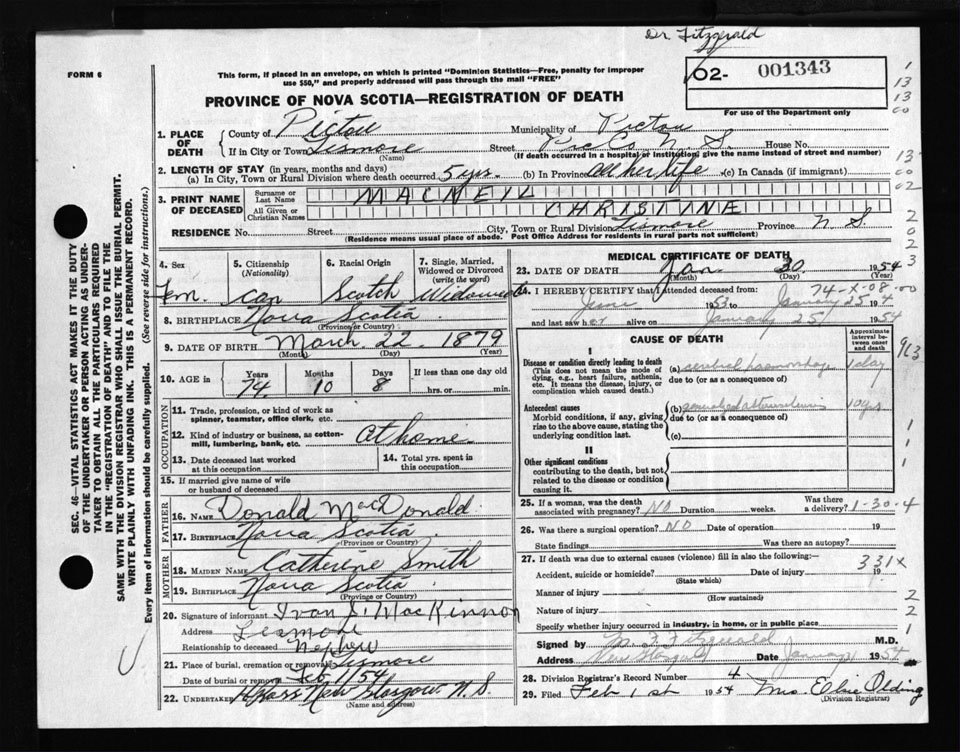 Dr Fitzgerald
FORM 6
This form, if placed in an envelope, on which is printed "Dominion Statistics—Free, penalty for improper
use $50," and properly addressed will pass through the mail "FREE"
02- 001343
For use of the Department only
PROVINCE OF NOVA SCOTIA—REGISTRATION OF DEATH
1. PLACE OF DEATH
County of Pictou Municipality of Pictou
If in City or Town Lismore Street Pictou N. S. House No.
(Name) (If death occurred in a hospital or institution, give the name instead of street and number)
2. LENGTH OF STAY (in years, months and days)
(a) In City, Town or Rural Division where death occurred 5 yrs. (b) In Province all her life (c) In Canada (if immigrant)
3. PRINT NAME OF DECEASED
Surname or Last Name MACNEIL
All Given or Christian Names CHRISTINA
RESIDENCE No. Street City, Town or Rural Division Lismore Province N. S.
(Residence means usual place of abode. Post Office Address for residents in rural parts not sufficient)
4. Sex Fm.
5. Citizenship (Nationality) Can
6. Racial Origin Scotch
7. Single, Married, Widowed or Divorced (write the word) Widowed
8. BIRTHPLACE Nova Scotia
(Province or Country)
9. DATE OF BIRTH March 22 1879
(Month) (Day) (Year)
10. AGE in Years 74 Months 10 Days 8 If less than one day old
hrs. or min.
OCCUPATION
11. Trade, profession, or kind of work as
spinner, teamster, office clerk, etc.
12. Kind of industry or business, as cotton-
mill, lumbering, bank, etc. at home
13. Date deceased last worked at this occupation
14. Total yrs. spent in this occupation
15. If married give name of wife
or husband of deceased
FATHER
16. NAME Donald MacDonald
17. BIRTHPLACE Nova Scotia
(Province or Country)
MOTHER
18. MAIDEN NAME Catherine Smith
19. BIRTHPLACE Nova Scotia
(Province or Country)
20. Signature of informant Ivan S. MacKinnon
Address Lismore
Relationship to deceased Nephew
21. Place of burial, cremation or removal Lismore
Date of burial or removal Feb 1/54
22. UNDERTAKER New Glasgow N. S.
(Name and address)
MEDICAL CERTIFICATE OF DEATH
23. DATE OF DEATH Jan. 30 1954
74-X-08-00
24. I HEREBY CERTIFY that I attended deceased from:
June 1953 to January 25 1954
and last saw her alive on January 25 1954
CAUSE OF DEATH
Approximate interval between onset and death
I
Disease or condition directly leading to death
(This does not mean the mode of
dying, e.g., heart failure, asthenia,
etc. It means the disease, injury, or
complication which caused death.)
(a) cerebral haemorrhage 1 day
due to (or as a consequence of)
Antecedent causes
Morbid conditions, if any, giving
rise to the above cause, stating the
underlying condition last.
(b) generalized arteriosclerosis 10 yrs
due to (or as a consequence of)
(c)
II
Other significant conditions
contributing to the death, but not
related to the disease or condition
causing it.
25. If a woman, was the death
associated with pregnancy? NO Duration weeks. Was there a delivery? 1-30-4
26. Was there a surgical operation? NO Date of operation 19
State findings Was there an autopsy?
27. If death was due to external causes (violence) fill in also the following: 331X
Accident, suicide or homicide? Date of injury 19
(State which)
Manner of injury
(How sustained)
Nature of injury
Specify whether injury occurred in industry, in home, or in public place
Signed by M. F. Fitzgerald M.D.
Address New Glasgow Date January 1954
28. Division Registrar's Record Number 4
29. Filed Feb 1st 1954 Mrs. Elsie Olding
(Division Registrar)
SEC. 46—VITAL STATISTICS ACT MAKES IT THE DUTY
OF THE UNDERTAKER OR PERSON ACTING AS UNDER-
TAKER TO OBTAIN ALL THE PARTICULARS REQUIRED
IN THE "REGISTRATION OF DEATH" AND TO FILE THE
SAME WITH THE DIVISION REGISTRAR WHO SHALL ISSUE THE BURIAL PERMIT.
WRITE PLAINLY WITH UNFADING INK. THIS IS A PERMANENT RECORD.
Every item of information should be carefully supplied. (See reverse side for instructions.)
1
13
13
00
13
00
02
2
0
2
3
963
1
1
2
2
1